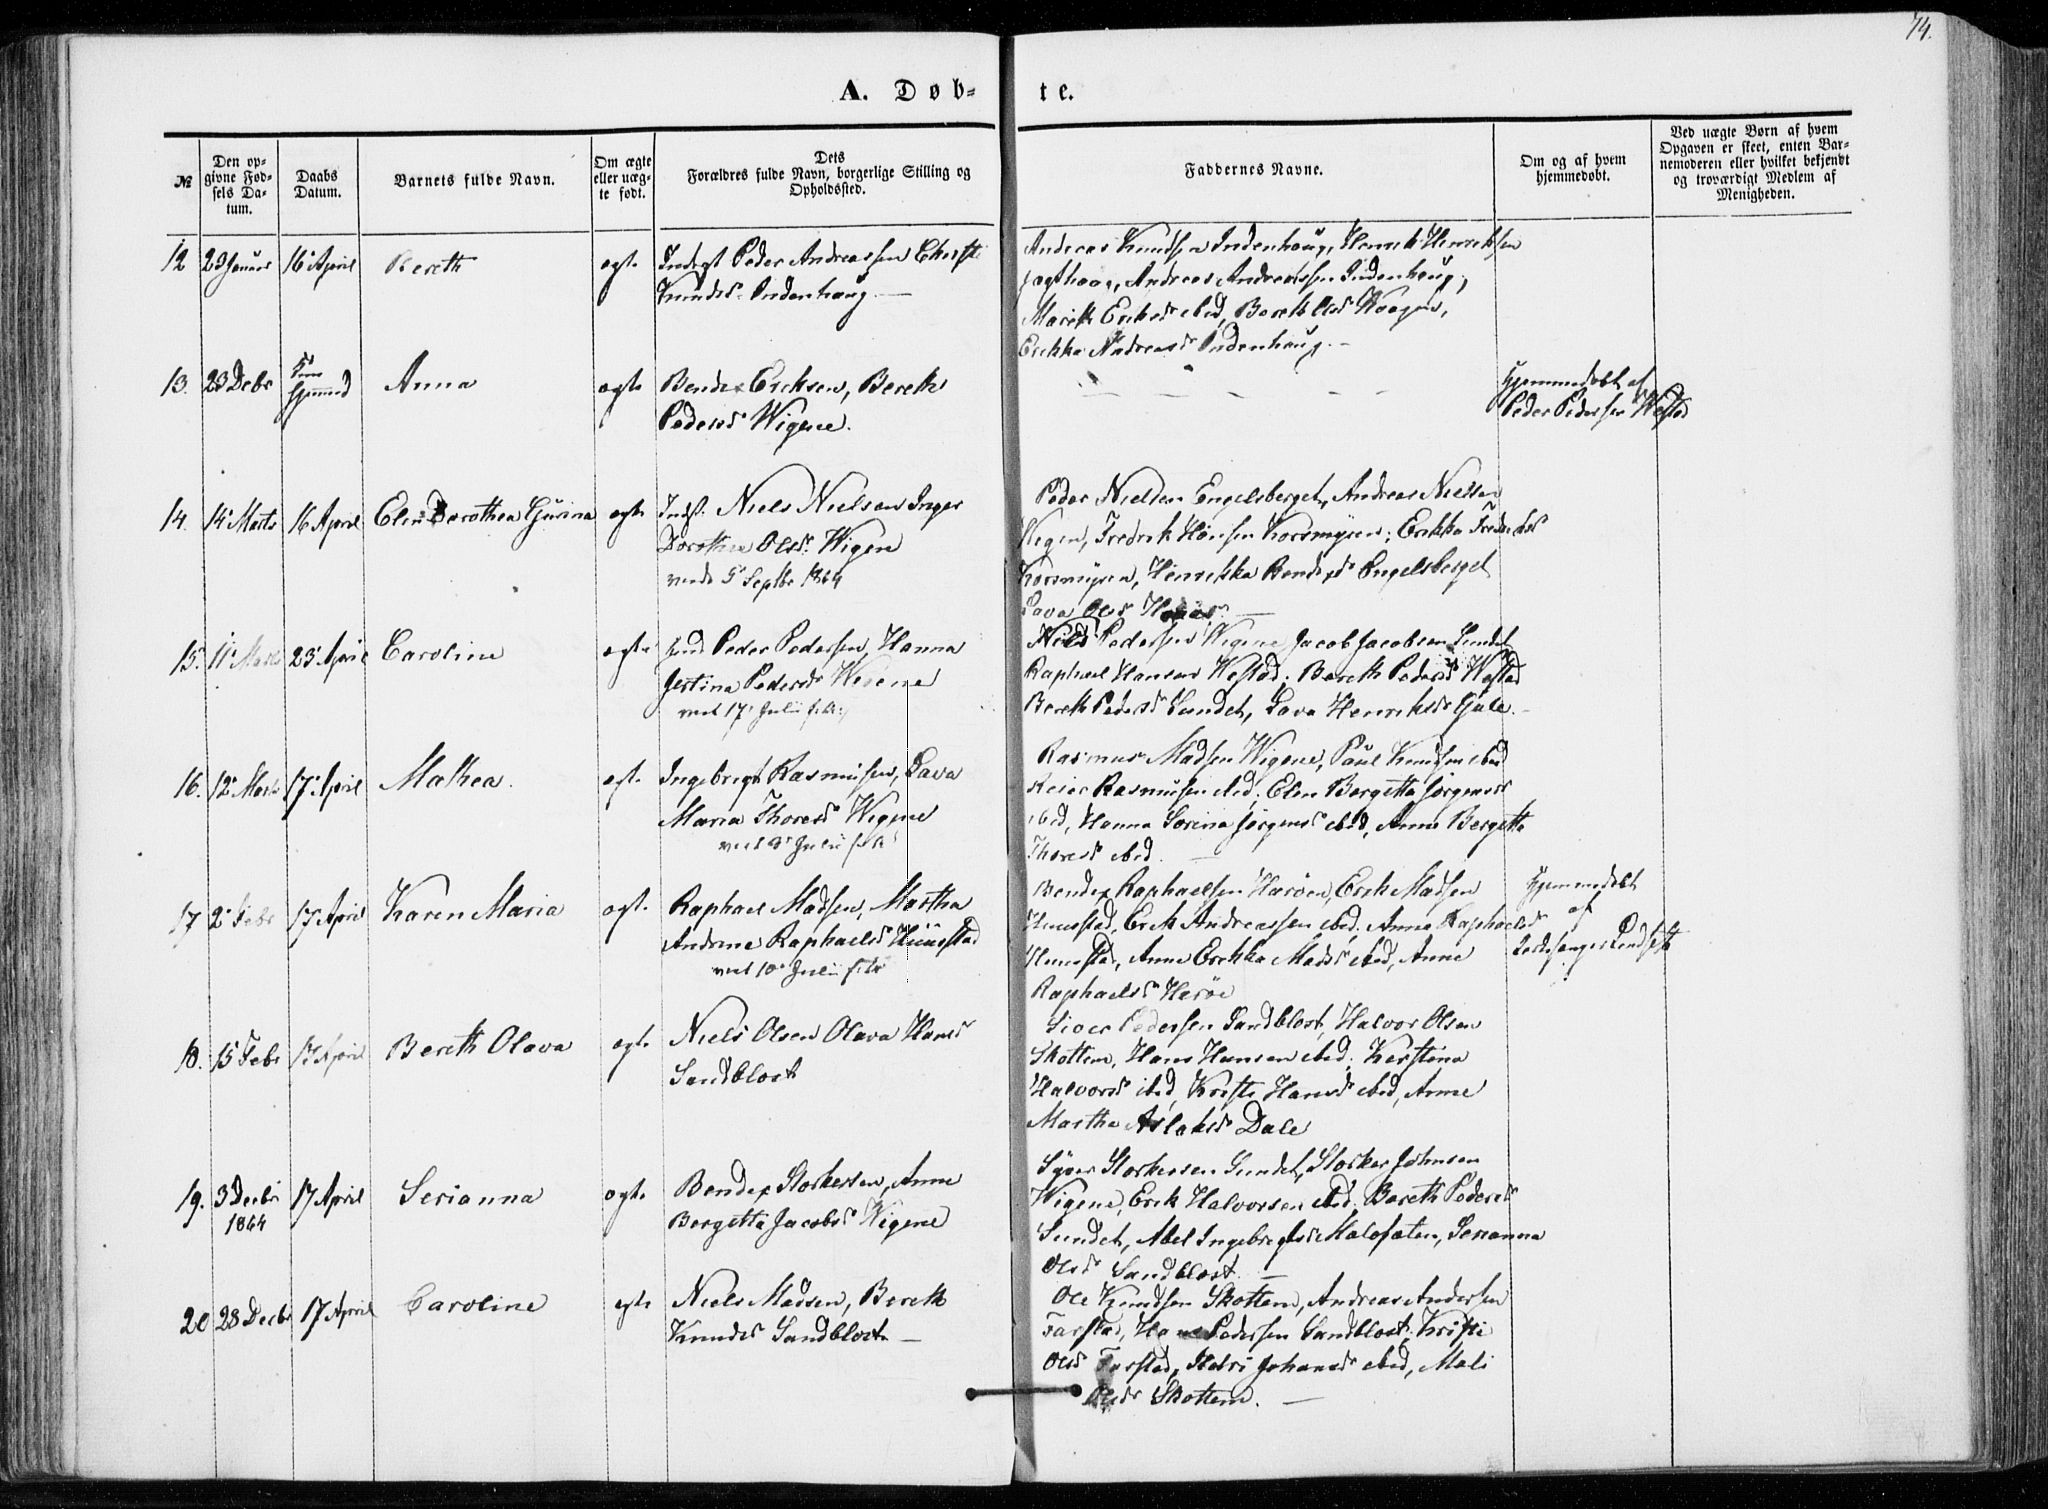 74.
A. Døb-
te.
№
Den op-
givne Fød-
sels Da-
tum.
Daabs
Datum.
Barnets fulde Navn.
Om ægte
eller uæg-
te født.
Dets
Forældres fulde Navn, borgerlige Stilling og
Opholdssted.
Faddernes Navne.
Om og af hvem
hjemmedøbt.
Ved uægte Børn af hvem
Opgaven er skeet, enten Bar-
nemoderen eller hvilket bekjendt
og troværdigt Medlem af
Menigheden.
12 29 Januar 16 April Bereth ægte
Peder Andreassen Chersti
Knudsd. Indenhaug. —
Andreas Knudsen Indenhaug, Henrik Henriksen
Andreas Andreassen Indenhaug,
Marith Eriksd ibid, Bereth Olsd
Erikka Andreasd Indenhaug. —
13. 23 Debr Anna ægte
Bendix Ericksen, Bereth
Pedersd Wigene.
— — — — — —
Hjemmedøbt af
Peder Pedersen Westad
14. 14 Marts 16 April Elen Dorothea Gurina ægte
Indst. Niels Nielsen Inger
Dorothea Olsd. Wigen
5 Septbr 1864
Peder Nielsen Engelsberget, Andreas Nielsen
Wigen, Fredrik Hansen Korsmyren; Erikka Fredriksd
Korsmyren, Henrikka Bendixd Engelsberget
Lava Olsd —
15. 11 Marts 23 April Caroline ægte
Peder Pedersen, Hanna
Jestina Pedersd Wigene
17 Julii f.A:
Niels Pedersen Wigene Jacob Jacobsen Sundet
Raphael Hansen Westad. Bereth Pedersd Westad
Bereth Pedersd Sundet, Lava Henriksd Gule. —
16. 12 Marts 17 April Mathea. ægte
Ingebrigt Rasmusen, Lava
Maria Thoresd Wigene
Julii f.A
Rasmus Madsen Wigene, Paul Knudsen ibid
Reier Rasmusen ibid, Elen Bergetta Jørgensd
ibid, Hanna Serina Jørgensd ibid, Anne Bergetta
Thoresd ibid. —
17 2 Febr 17 April Karen Maria ægte
Raphael Madsen, Martha
Andrine Raphaelsd Huustad
10 Julii f.A
Bendix Raphaelsen Harøen, Erik Madsen
Huustad, Erik Andreassen ibid, Anna Raphaelsd
Huustad, Anne Erikka Madsd ibid, Anne
Raphaelsd Harøe
Hjemmedøbt
af
18. 15 Febr 17 April Bereth Olava ægte
Niels Olsen Olava Hansd
Sandblost
Siver Pedersen Sandblost, Halvor Olsen
Skottem, Hans Hansen ibid. Kerstina
Halvorsd ibid, Kristi Hansd ibid, Anne
Martha Aslaksd Dale
19. 3 Decbr
1864 17 April Serianna ægte
Bendix Storkersen, Anne
Bergetta Jacobsd Wigene
Syver Storkersen Sundet, Storker Johnsen
Wigene, Erik Halvorsen ibid, Bereth Pedersd
Sundet, Abel Ingebrigtsd Malefeten, Serianna
Olsd Sandblost —
20 28 Decbr 17 April Caroline ægte
Niels Madsen, Bereth
Knudsd Sandblost —
Ole Knudsen Skottem, Andreas Andersen
Farstad, Hans Pedersen Sandblost, Kristi
Olsd Farstad, Johansd ibid, Mali
Olsd Skottem. —